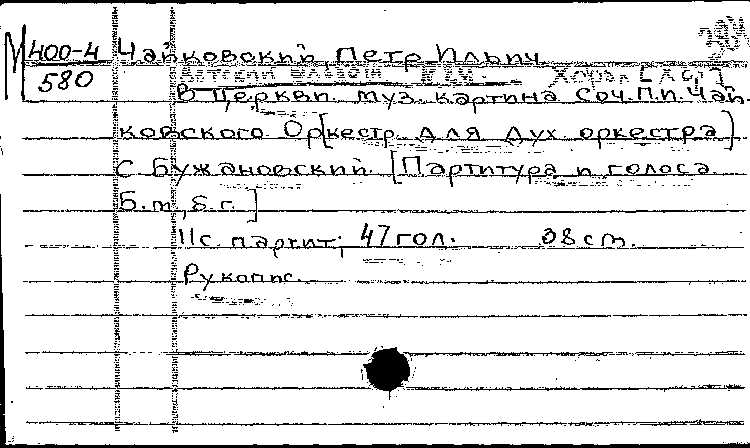 М 400-4 Чайковский, Петр Ильич
580 Детский альбом Хорал
В церкви. муз. картина Соч. П.И. Чай-
ковского. Ор[кестр. для дух оркестра]
С Бужановский. [Партитура и голоса
Б.м., б.г.]
11с. партит; 47 гол. 38 cm.
Рукопис.